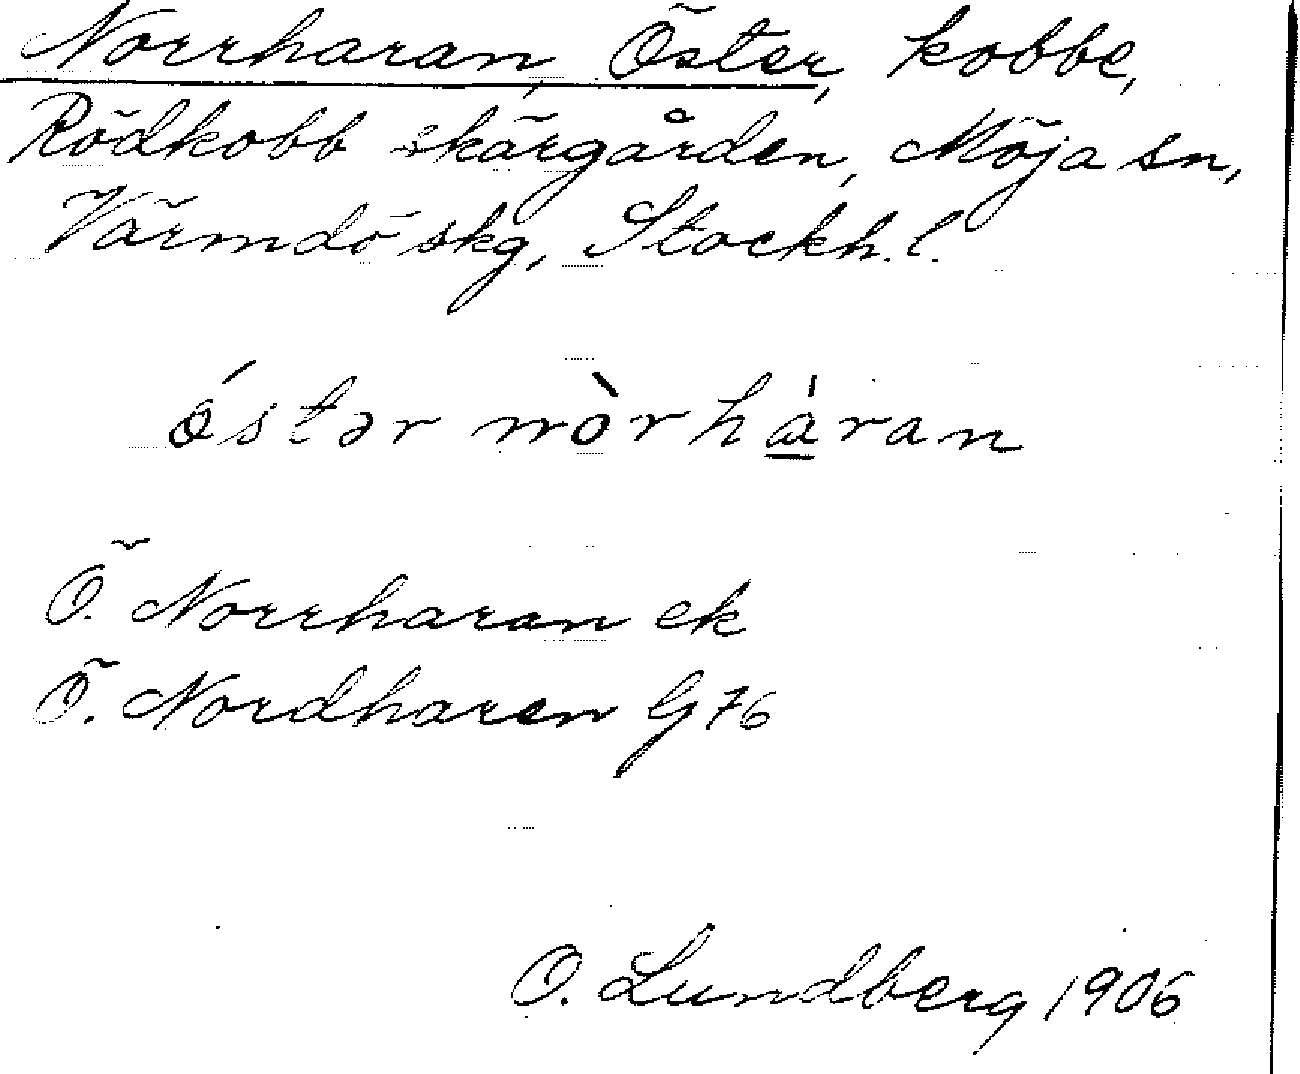 Norrharan, Öster, kobbe,
Rödkobb skärgården, Möja sn,
Värmdö skg, Stockh. l.
óstər nòrháran
Ö. Norrharan ek
Ö. Nordharen G 76
O. Lundberg 1906